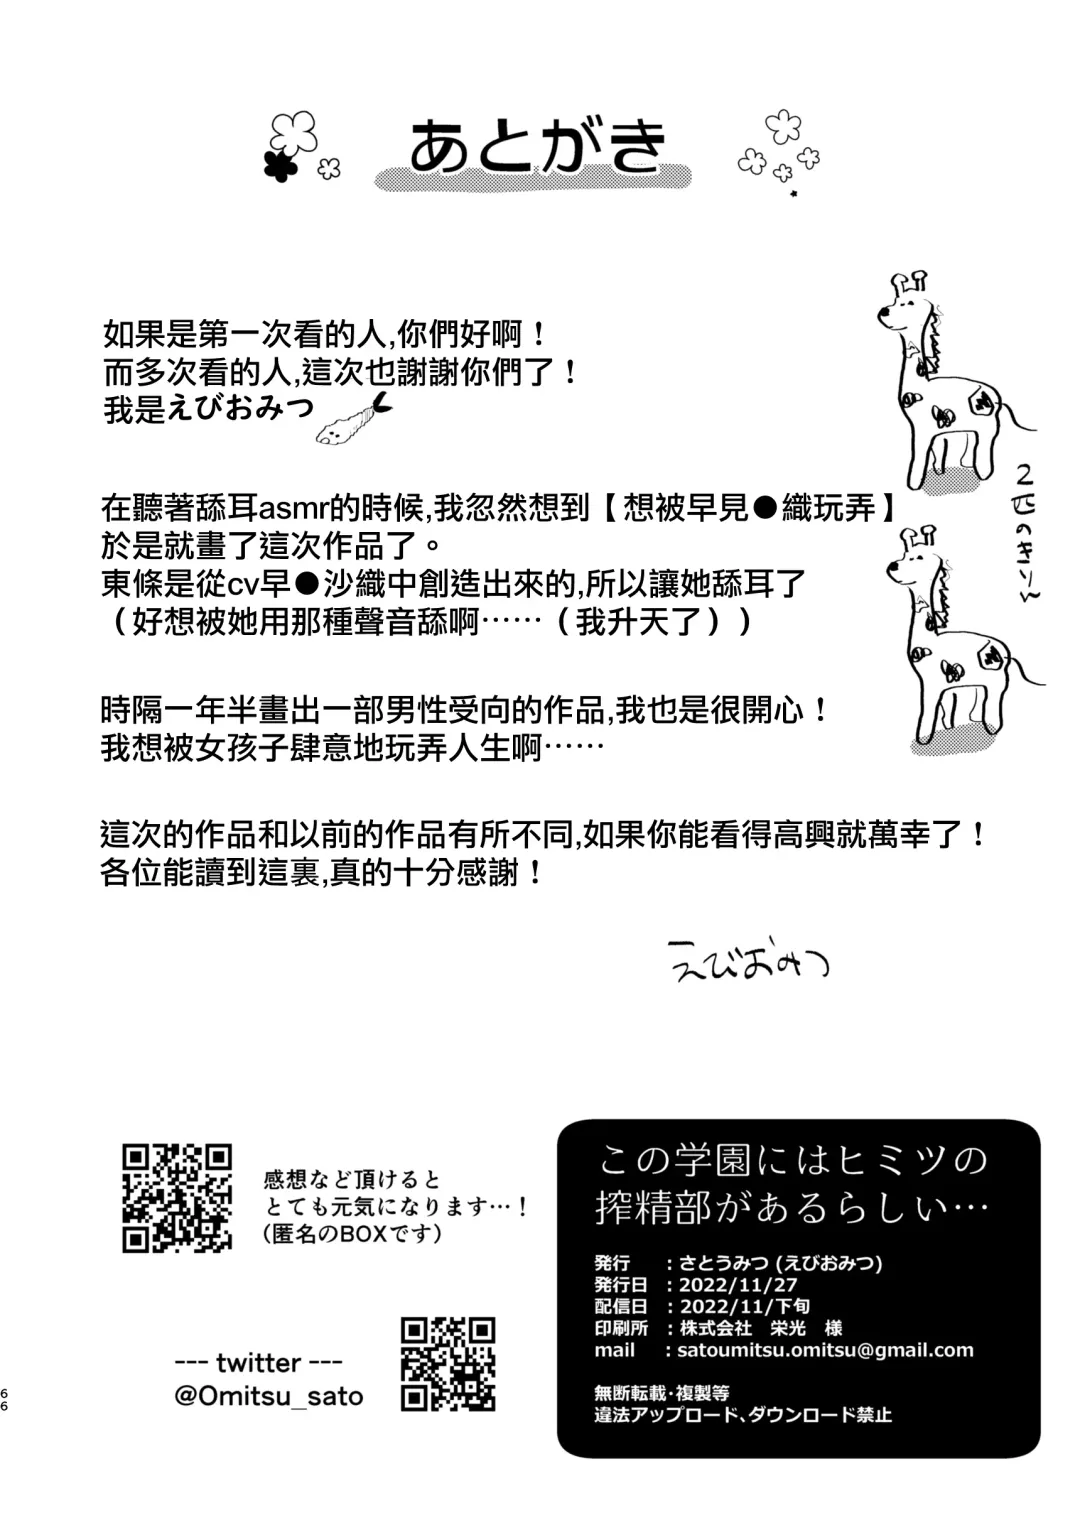 あとがき
如果是第一次看的人,你們好啊！
而多次看的人,這次也謝謝你們了！
我是えびおみつ
在聽著舔耳asmr的時候,我忽然想到【想被早見●織玩弄】
於是就畫了這次作品了。
東條是從cv早●沙織中創造出來的,所以讓她舔耳了
（好想被她用那種聲音舔啊……（我升天了））
時隔一年半畫出一部男性受向的作品,我也是很開心！
我想被女孩子肆意地玩弄人生啊……
這次的作品和以前的作品有所不同,如果你能看得高興就萬幸了！
各位能讀到這裏,真的十分感謝！
えびおみつ
2匹のきりん
感想など頂けると
とても元気になります…！
(匿名のBOXです)
--- twitter ---
@Omitsu_sato
この学園にはヒミツの
搾精部があるらしい…
発行　：さとうみつ (えびおみつ)
発行日　：2022/11/27
配信日　：2022/11/下旬
印刷所　：株式会社　栄光　様
mail　：satoumitsu.omitsu@gmail.com
無断転載・複製等
違法アップロード、ダウンロード禁止
66